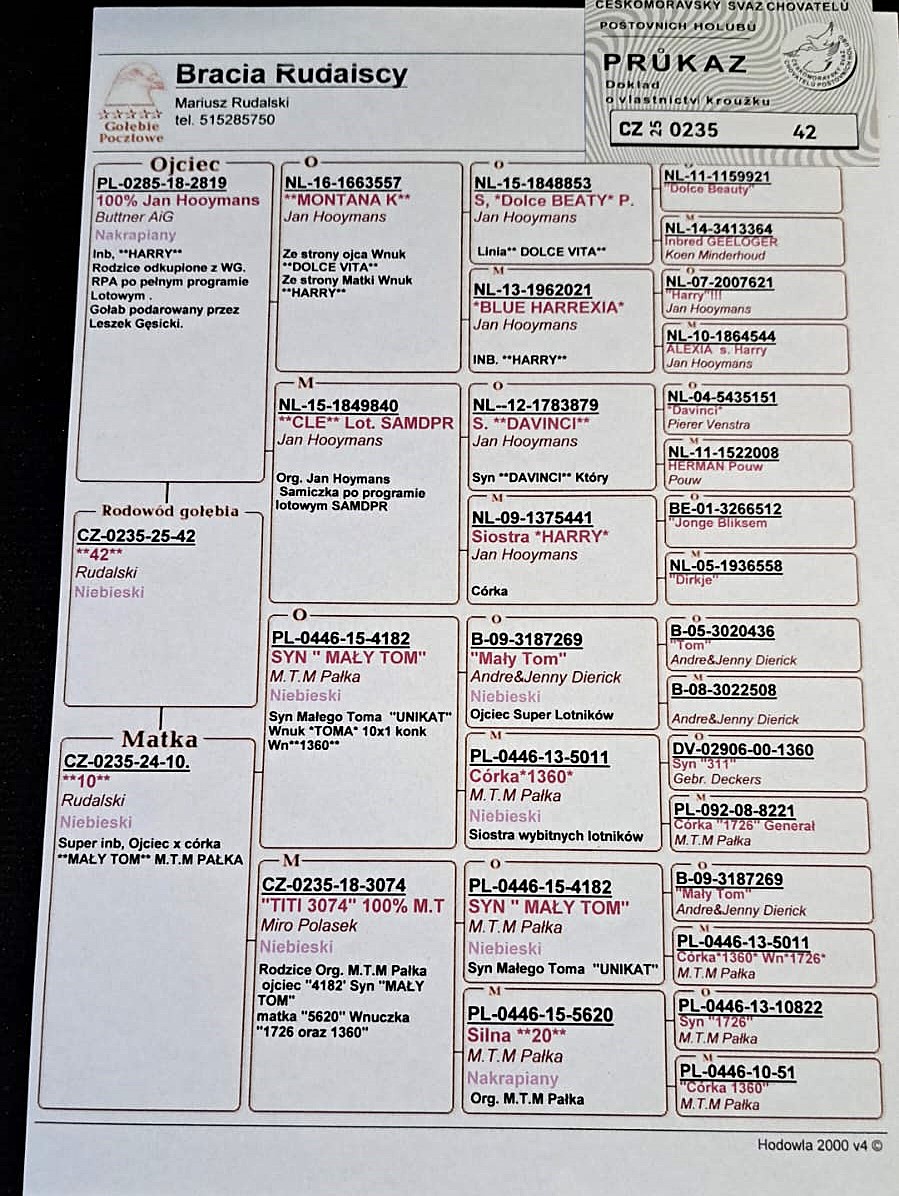 ČESKOMORAVSKÝ SVAZ CHOVATELŮ
POŠTOVNÍCH HOLUBŮ
PRŮKAZ
Doklad
o vlastnictví kroužku
CZ 25 0235 42
Bracia Rudaiscy
Mariusz Rudalski
tel. 515285750
Gołębie
Pocztowe
Ojciec
PL-0285-18-2819
100% Jan Hooymans
Buttner AiG
Nakrapiany
Inb, **HARRY**
Rodzice odkupione z WG.
RPA po pełnym programie
Lotowym .
Gołab podarowany przez
Leszek Gęsicki.
Rodowód gołębia
CZ-0235-25-42
**42**
Rudalski
Niebieski
Matka
CZ-0235-24-10.
**10**
Rudalski
Niebieski
Super inb, Ojciec x córka
**MAŁY TOM** M.T.M PAŁKA
O
NL-16-1663557
**MONTANA K**
Jan Hooymans
Ze strony ojca Wnuk
**DOLCE VITA**
Ze strony Matki Wnuk
**HARRY**
M
NL-15-1849840
**CLE** Lot. SAMDPR
Jan Hooymans
Org. Jan Hoymans
Samiczka po programie
lotowym SAMDPR
O
PL-0446-15-4182
SYN " MAŁY TOM"
M.T.M Pałka
Niebieski
Syn Małego Toma "UNIKAT"
Wnuk *TOMA* 10x1 konk
Wn**1360**
M
CZ-0235-18-3074
"TITI 3074" 100% M.T
Miro Polasek
Niebieski
Rodzice Org. M.T.M Pałka
ojciec "4182' Syn "MAŁY
TOM"
matka "5620" Wnuczka
"1726 oraz 1360"
O
NL-15-1848853
S, *Dolce BEATY* P.
Jan Hooymans
Linia** DOLCE VITA**
M
NL-13-1962021
*BLUE HARREXIA*
Jan Hooymans
INB. **HARRY**
O
NL--12-1783879
S. **DAVINCI**
Jan Hooymans
Syn **DAVINCI** Który
M
NL-09-1375441
Siostra *HARRY*
Jan Hooymans
Córka
O
B-09-3187269
"Mały Tom"
Andre&Jenny Dierick
Niebieski
Ojciec Super Lotników
M
PL-0446-13-5011
Córka*1360*
M.T.M Pałka
Niebieski
Siostra wybitnych lotników
O
PL-0446-15-4182
SYN " MAŁY TOM"
M.T.M Pałka
Niebieski
Syn Małego Toma "UNIKAT"
M
PL-0446-15-5620
Silna **20**
M.T.M Pałka
Nakrapiany
Org. M.T.M Pałka
O
NL-11-1159921
"Dolce Beauty"
M
NL-14-3413364
Inbred GEELOGER
Koen Minderhoud
O
NL-07-2007621
"Harry"!!!
Jan Hooymans
M
NL-10-1864544
ALEXIA s. Harry
Jan Hooymans
O
NL-04-5435151
"Davinci"
Pierer Venstra
M
NL-11-1522008
HERMAN Pouw
Pouw
O
BE-01-3266512
"Jonge Bliksem
M
NL-05-1936558
"Dirkje"
O
B-05-3020436
"Tom"
Andre&Jenny Dierick
M
B-08-3022508
Andre&Jenny Dierick
O
DV-02906-00-1360
Syn "311"
Gebr. Deckers
M
PL-092-08-8221
Córka "1726" Generał
M.T.M Pałka
O
B-09-3187269
"Mały Tom"
Andre&Jenny Dierick
M
PL-0446-13-5011
Córka*1360* Wn*1726*
M.T.M Pałka
O
PL-0446-13-10822
Syn "1726"
M.T.M Pałka
M
PL-0446-10-51
"Córka 1360"
M.T.M Pałka
Hodowla 2000 v4 ©